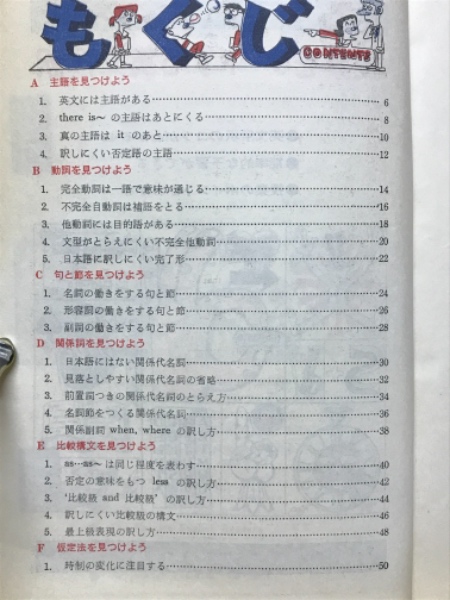 もくじ
CONTENTS
A 主語を見つけよう
1. 英文には主語がある……6
2. there is～ の主語はあとにくる……8
3. 真の主語は it のあと……10
4. 訳しにくい否定語の主語……12
B 動詞を見つけよう
1. 完全動詞は一語で意味が通じる……14
2. 不完全自動詞は補語をとる……16
3. 他動詞には目的語がある……18
4. 文型がとらえにくい不完全他動詞……20
5. 日本語に訳しにくい完了形……22
C 句と節を見つけよう
1. 名詞の働きをする句と節……24
2. 形容詞の働きをする句と節……26
3. 副詞の働きをする句と節……28
D 関係詞を見つけよう
1. 日本語にはない関係代名詞……30
2. 見落としやすい関係代名詞の省略……32
3. 前置詞つきの関係代名詞のとらえ方……34
4. 名詞節をつくる関係代名詞……36
5. 関係副詞 when, where の訳し方……38
E 比較構文を見つけよう
1. as…as～ は同じ程度を表わす……40
2. 否定の意味をもつ less の訳し方……42
3. ‘比較級 and 比較級’ の訳し方……44
4. 訳しにくい比較級の構文……46
5. 最上級表現の訳し方……48
F 仮定法を見つけよう
1. 時制の変化に注目する……50